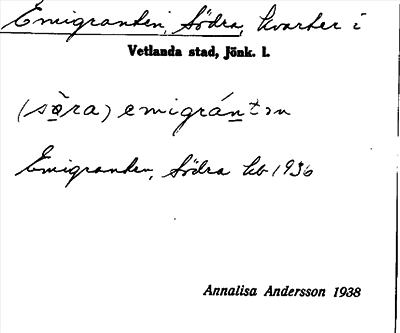 Emigranten, Södra, kvarter i
Vetlanda stad, Jönk. l.
(sö̱ra) emigrán̲tən
Emigranten, Södra kb 1936
Annalisa Andersson 1938